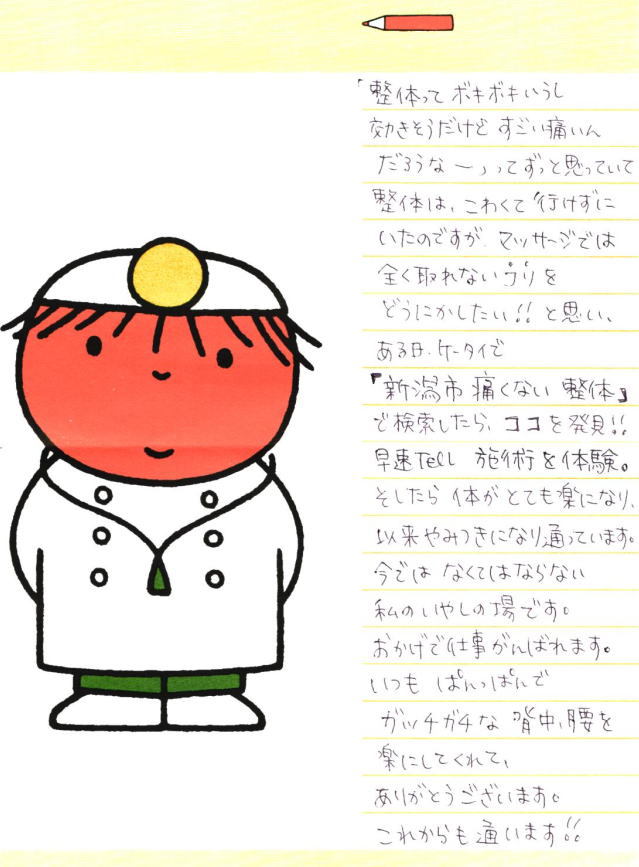 「整体って ボキボキいうし
効きそうだけど すごい痛いん
だろうな ー」ってずっと思っていて
整体は、こわくて 行けずに
いたのですが、マッサージでは
全く取れないコリを
どうにかしたい!! と思い、
ある日、ケータイで
『新潟市 痛くない 整体』
で検索したら、ココを発見!!
早速Tell 施術を体験。
そしたら 体が とても楽になり、
以来やみつきになり通っています。
今では なくてはならない
私のいやしの場です。
おかげで仕事がんばれます。
いつも ぱんっぱんで
ガッチガチな 背中、腰を
楽にしてくれて、
ありがとうございます。
これからも 通います!!